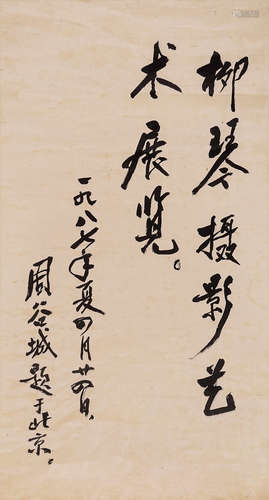 柳琴摄影艺
术展览。
一九八七年夏四月廿四日，
周谷城题于北京。